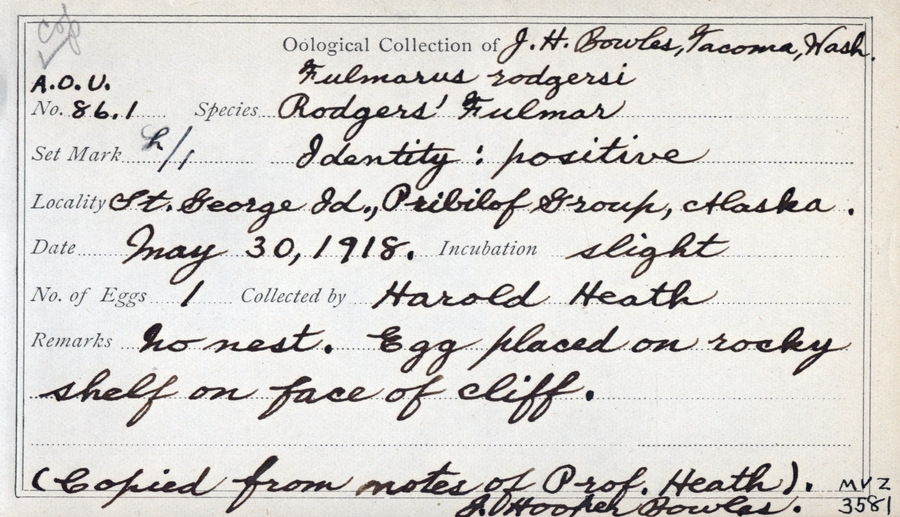 cop
Oölogical Collection of J. H. Bowles, Tacoma, Wash.
A.O.U. Fulmarus rodgersi
No. 86.1 Species Rodgers' Fulmar
Set Mark h/1 Identity : positive
Locality St. George Id., Pribilof Group, Alaska.
Date May 30, 1918. Incubation slight
No. of Eggs 1 Collected by Harold Heath
Remarks No nest. Egg placed on rocky
shelf on face of cliff.
(Copied from notes of Prof. Heath).
J. Hooper Bowles.
MVZ
3581